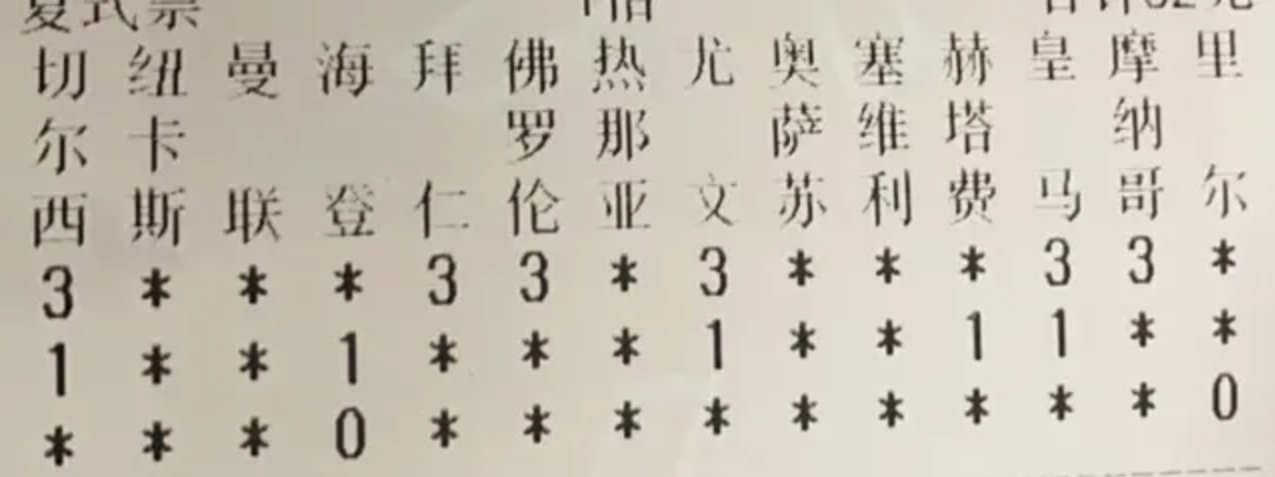 复式票
切 纽 曼 海 拜 佛 热 尤 奥 塞 赫 皇 摩 里
尔 卡 罗 那 萨 维 塔 纳
西 斯 联 登 仁 伦 亚 文 苏 利 费 马 哥 尔
3 * * * 3 3 * 3 * * * 3 3 *
1 * * 1 * * * 1 * * 1 1 * *
* * * 0 * * * * * * * * * 0